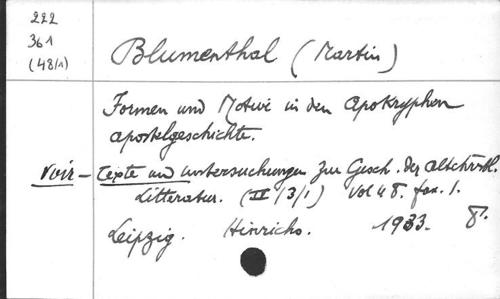 222
361
(48/1)
Blumenthal (Martin)
Formen und Motive in den apokryphen
apostelgeschichte.
voir – Texte und untersuchungen zur Gesch. der altchristl.
Litteratur. (IV/3/1) Vol 48. fas. 1.
Leipzig. Hinrichs. 1933. 8°.